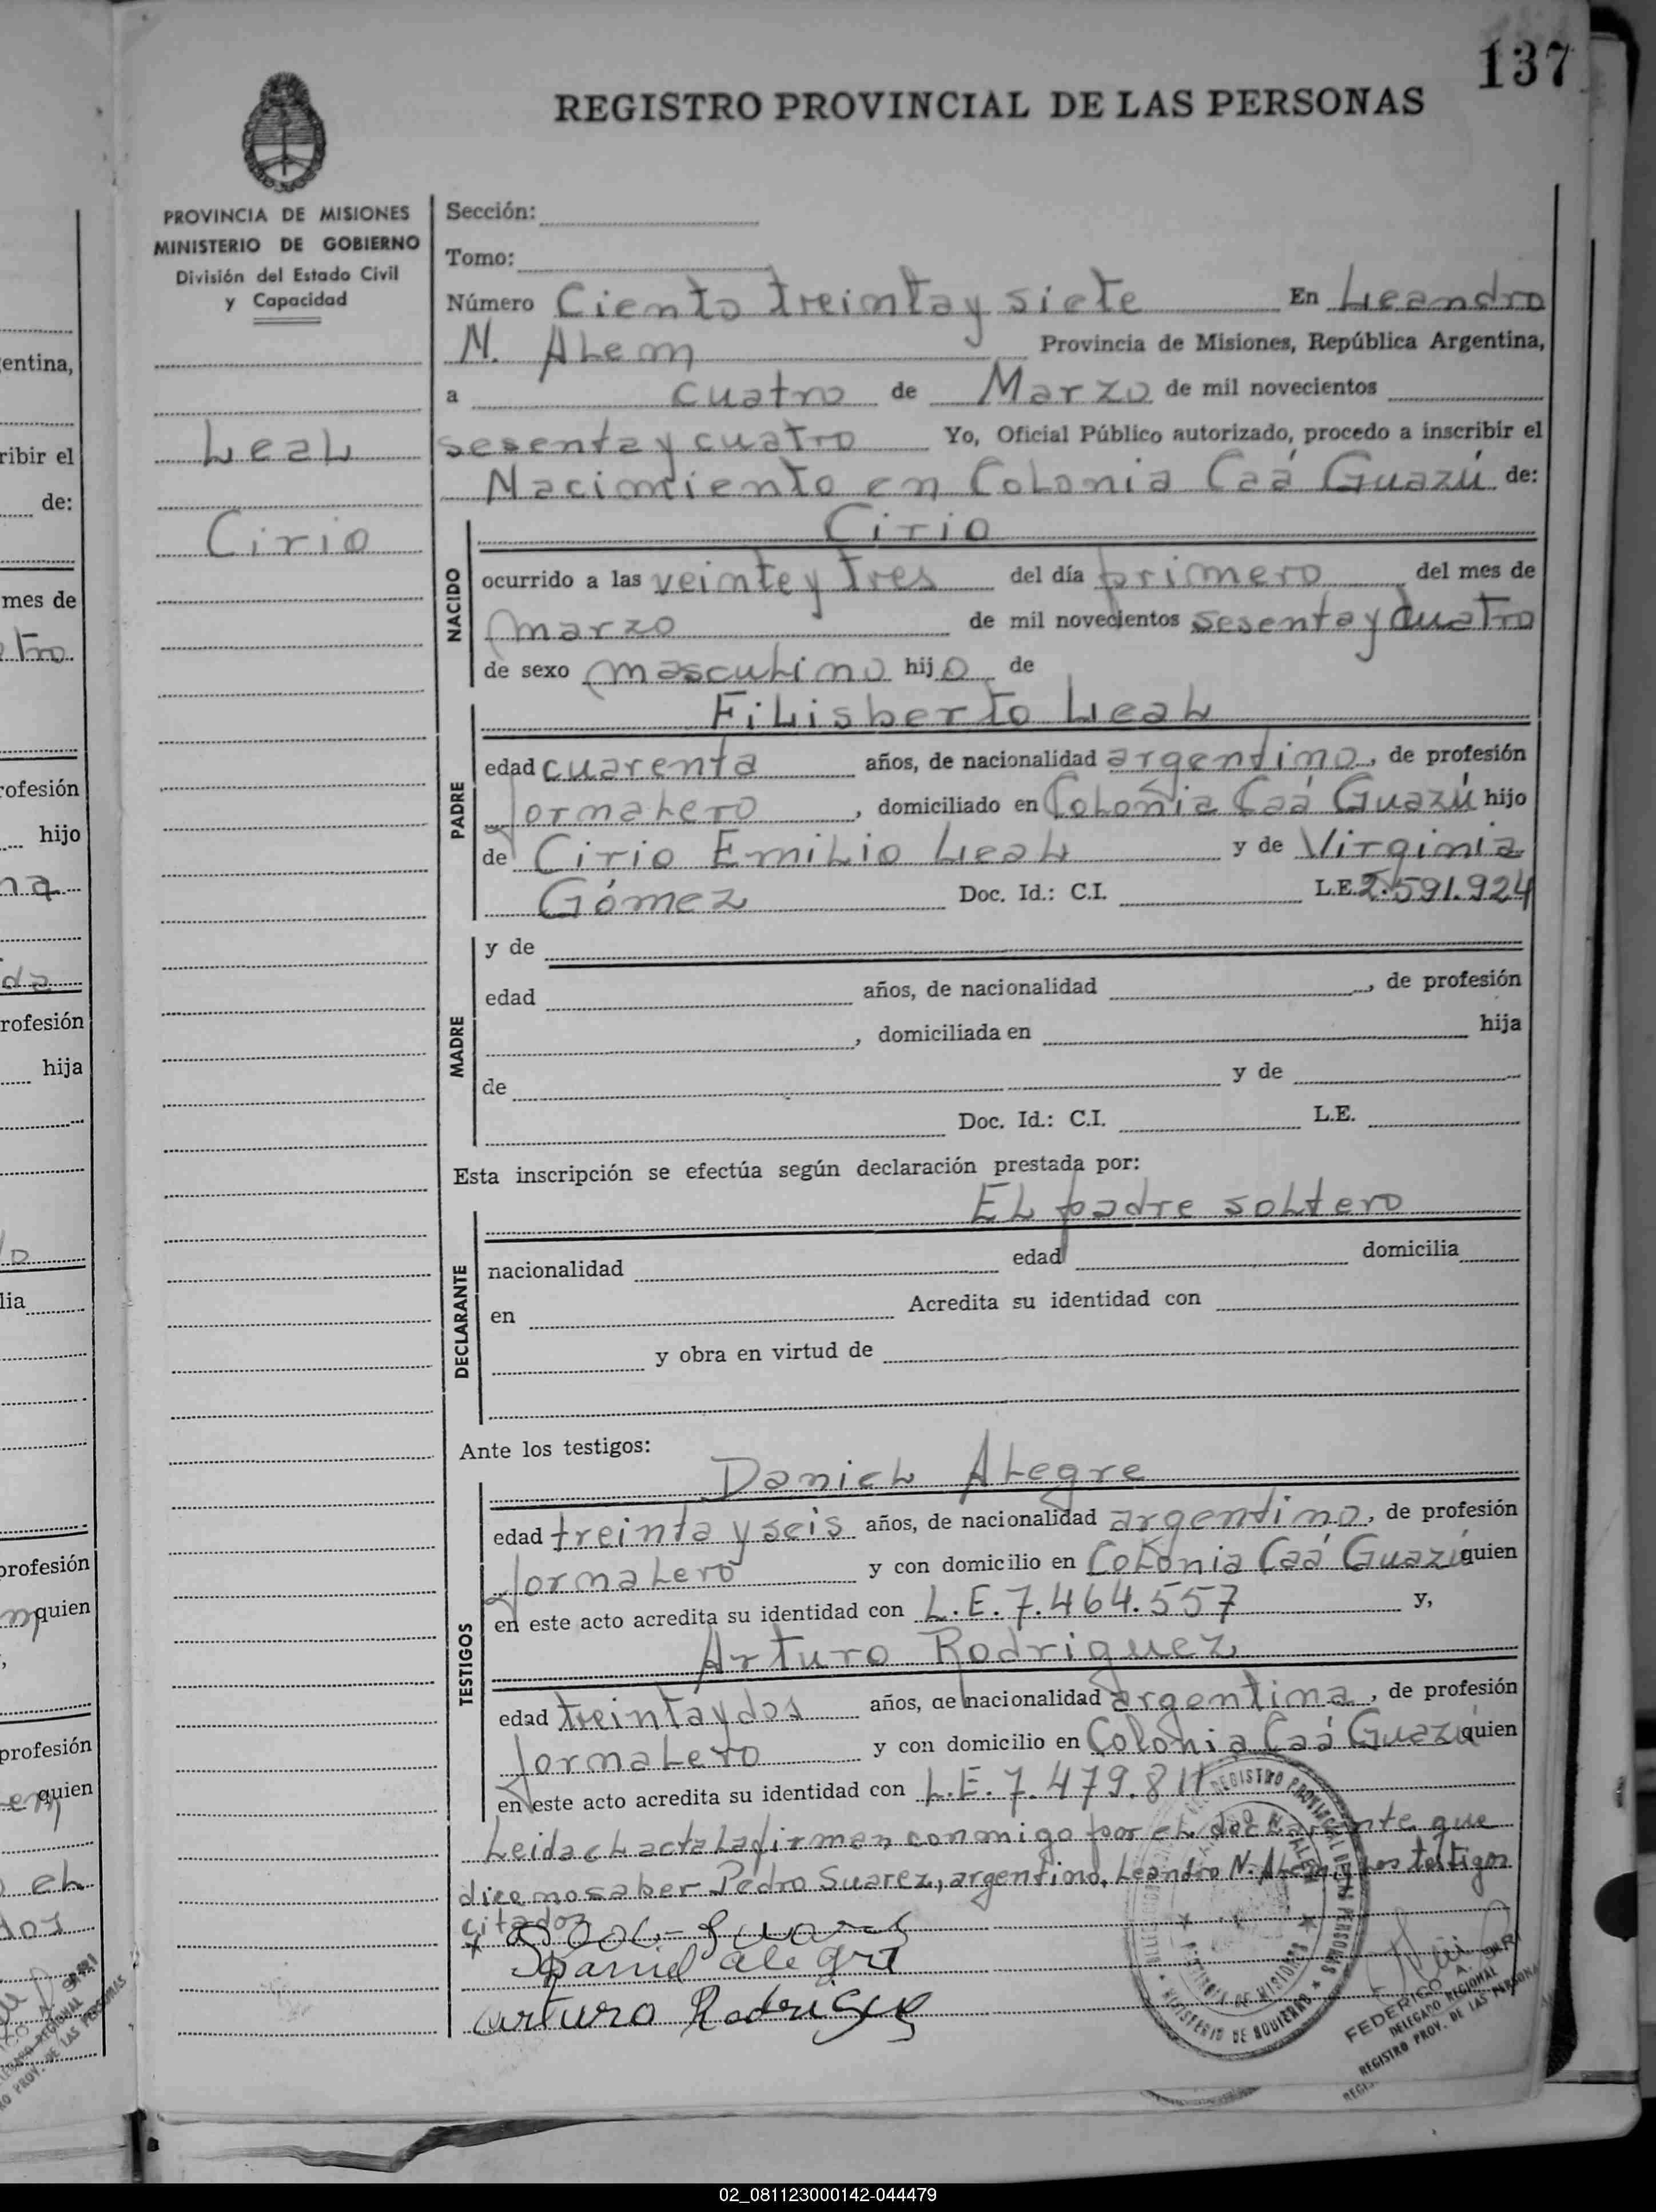 137
REGISTRO PROVINCIAL DE LAS PERSONAS
PROVINCIA DE MISIONES
MINISTERIO DE GOBIERNO
División del Estado Civil
y Capacidad
Leal
Cirio
Sección:
Tomo:
Número Ciento treinta y siete En Leandro
N. Alem Provincia de Misiones, República Argentina,
a cuatro de Marzo de mil novecientos
sesenta y cuatro Yo, Oficial Público autorizado, procedo a inscribir el
Nacimiento en Colonia Caá Guazú de:
NACIDO
Cirio
ocurrido a las veinte y tres del día primero del mes de
marzo de mil novecientos sesenta y cuatro
de sexo masculino hijo de
PADRE
Filisberto Leal
edad cuarenta años, de nacionalidad argentino, de profesión
jornalero, domiciliado en Colonia Caá Guazú hijo
de Cirio Emilio Leal y de Virginia
Gómez Doc. Id.: C.I. L.E. 2.591.924
MADRE
y de
edad años, de nacionalidad , de profesión
, domiciliada en hija
de y de
Doc. Id.: C.I. L.E.
Esta inscripción se efectúa según declaración prestada por:
DECLARANTE
El padre soltero
nacionalidad edad domicilia
en Acredita su identidad con
y obra en virtud de
Ante los testigos:
TESTIGOS
Daniel Alegre
edad treinta y seis años, de nacionalidad argentino, de profesión
jornalero y con domicilio en Colonia Caá Guazú quien
en este acto acredita su identidad con L.E. 7.464.557 y,
Arturo Rodriguez
edad treinta y dos años, de nacionalidad argentina, de profesión
jornalero y con domicilio en Colonia Caá Guazú quien
en este acto acredita su identidad con L.E. 7.479.811
Leida el acta la firman conmigo por el declarante que
dice no saber Pedro Suarez, argentino, Leandro N. Alem y los testigos
citados
Daniel alegre
arturo Rodrigue
REGISTRO PROVINCIAL DE LAS PERSONAS
MINISTERIO DE GOBIERNO
FEDERICO A.
DELEGADO REGIONAL
REGISTRO PROV. DE LAS PERSONAS
entina,
ribir el
de:
mes de
tro
rofesión
hijo
na
da
rofesión
hija
lia
profesión
quien
profesión
quien
el
dos
02_081123000142-044479